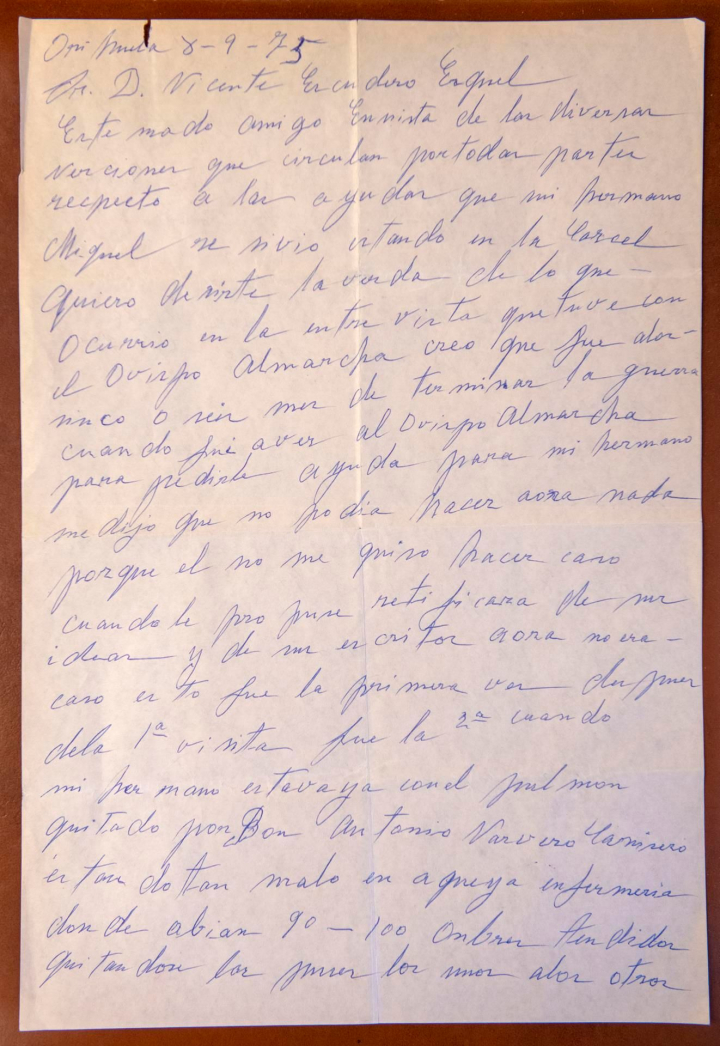 Orihuela 8-9-75
Sr. D. Vicente Escudero Esquel
Estemado amigo Envista de las diversas
verciones que circulan portodas partes
respecto a las ayudas que mi hermano
Miguel se sivio estando en la Carcel
quiero desirte la verda de lo que-
Ocurrio en la entre vista que tuve con
el Ovispo Almarcha creo que fue alos-
sinco o seis mes de terminar la guerra
cuando fué aver al Ovispo Almarcha
para pedirle ayuda para mi hermano
me dijo que no podia hacer aora nada
porque el no me quiso hacer caso
cuando le propuse retificara de sus
ideas y de sus escritos aora no era-
caso esto fue la primera ves despues
dela 1ª visita fue la 2ª cuando
mi hermano estava ya conel pulmon
quitado por Don Antonio Varvero Carnisero
estando tan malo en aqueya enfermeria
donde abian 90-100 Onbres tendidos
quitandose las puses los unos alos otros